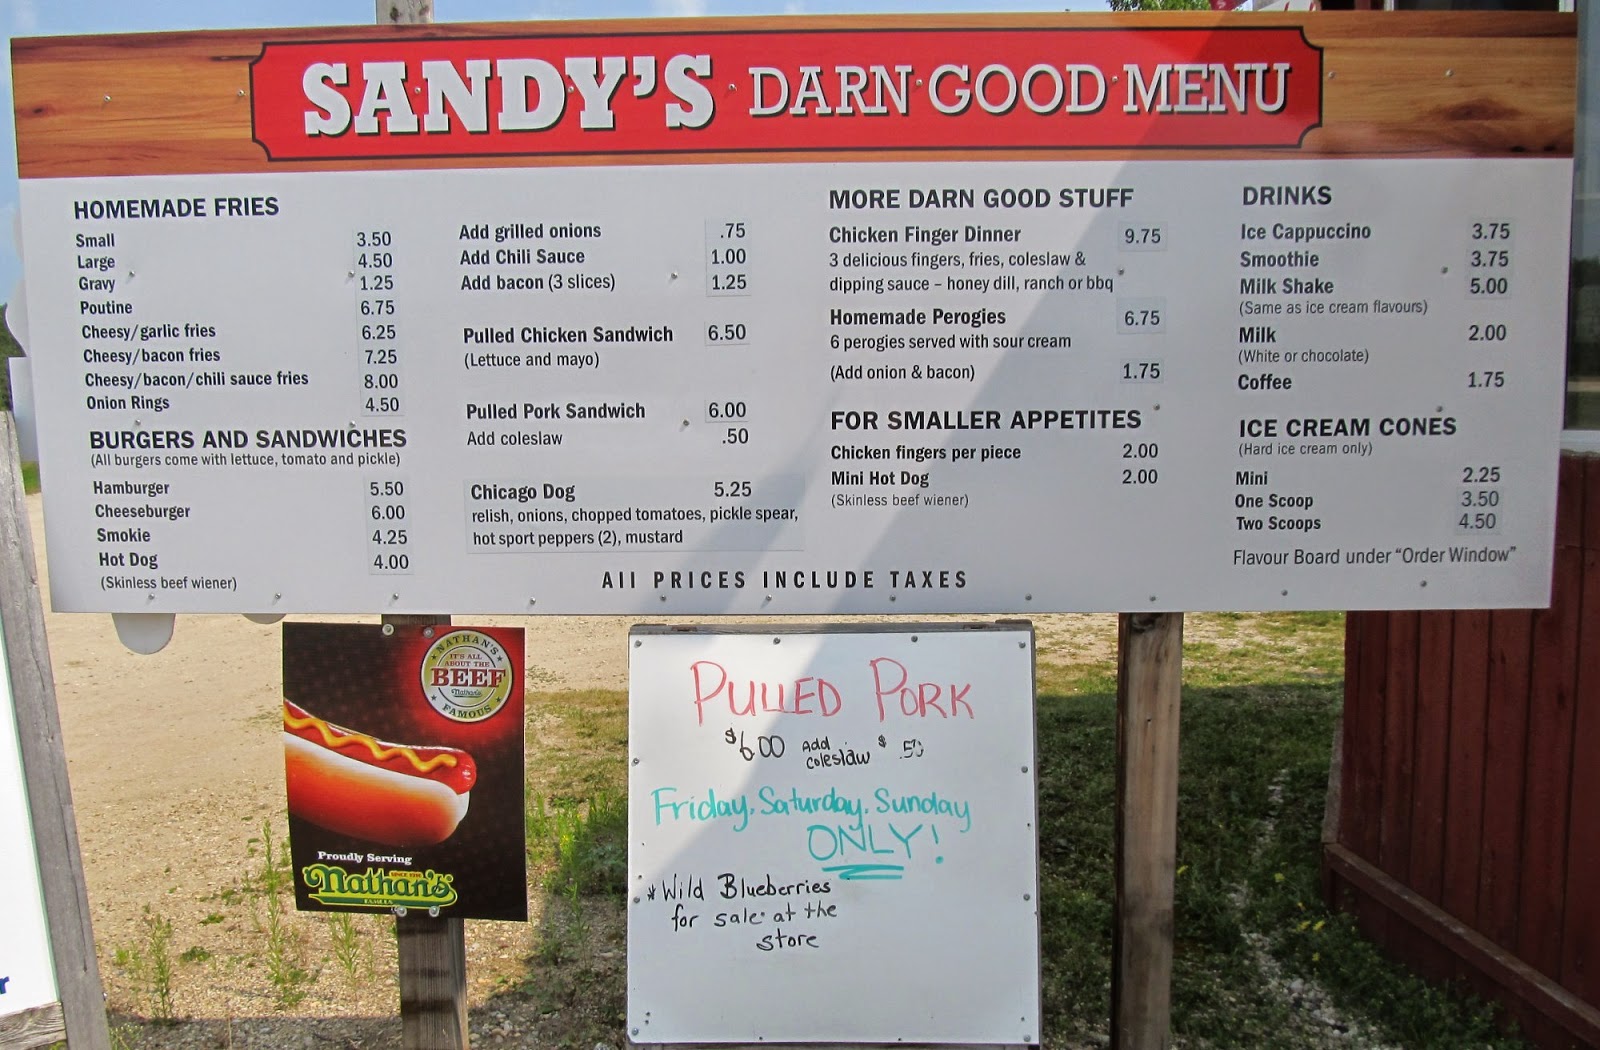 SANDY'S DARN GOOD MENU
HOMEMADE FRIES
Small 3.50
Large 4.50
Gravy 1.25
Poutine 6.75
Cheesy/garlic fries 6.25
Cheesy/bacon fries 7.25
Cheesy/bacon/chili sauce fries 8.00
Onion Rings 4.50
BURGERS AND SANDWICHES
(All burgers come with lettuce, tomato and pickle)
Hamburger 5.50
Cheeseburger 6.00
Smokie 4.25
Hot Dog 4.00
(Skinless beef wiener)
Add grilled onions .75
Add Chili Sauce 1.00
Add bacon (3 slices) 1.25
Pulled Chicken Sandwich 6.50
(Lettuce and mayo)
Pulled Pork Sandwich 6.00
Add coleslaw .50
Chicago Dog 5.25
relish, onions, chopped tomatoes, pickle spear,
hot sport peppers (2), mustard
MORE DARN GOOD STUFF
Chicken Finger Dinner 9.75
3 delicious fingers, fries, coleslaw &
dipping sauce – honey dill, ranch or bbq
Homemade Perogies 6.75
6 perogies served with sour cream
(Add onion & bacon) 1.75
FOR SMALLER APPETITES
Chicken fingers per piece 2.00
Mini Hot Dog 2.00
(Skinless beef wiener)
DRINKS
Ice Cappuccino 3.75
Smoothie 3.75
Milk Shake 5.00
(Same as ice cream flavours)
Milk 2.00
(White or chocolate)
Coffee 1.75
ICE CREAM CONES
(Hard ice cream only)
Mini 2.25
One Scoop 3.50
Two Scoops 4.50
Flavour Board under "Order Window"
All PRICES INCLUDE TAXES
NATHAN'S
IT'S ALL
ABOUT THE
BEEF
Nathan's
FAMOUS
Proudly Serving
SINCE 1916
Nathan's
FAMOUS
PULLED PORK
$6.00 Add coleslaw $.50
Friday, Saturday, Sunday
ONLY!
*Wild Blueberries
for sale at the
store
r